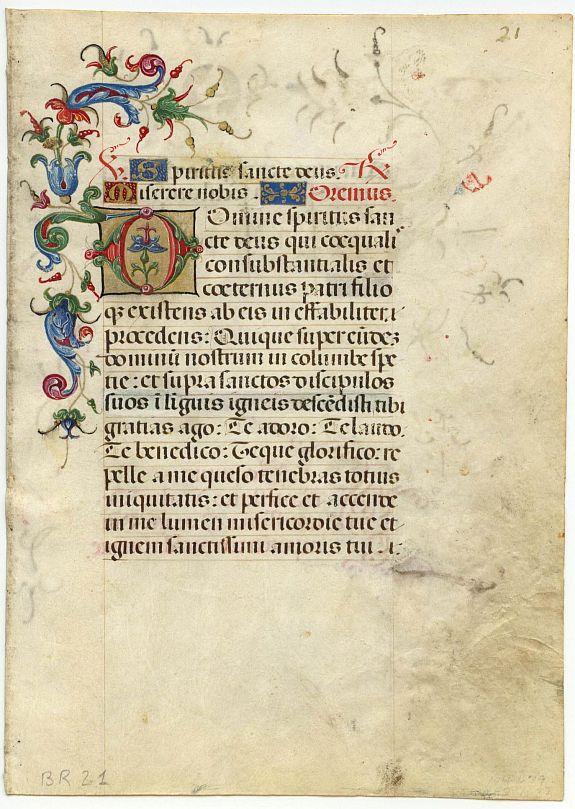 21
V Spiritus sancte deus. R
Miserere nobis. Oremus.
Domine spiritus san
cte deus qui coequali
consubstantialis et
coeternus patri filio
qz existens ab eis in effabiliter.
procedens: Qui que super eūdez
dominū nostrum in columbe spe
tie: et supra sanctos discipulos
suos ī līguis igneis descēdisti tibi
gratias ago: Te adoro: Te laudo.
Te benedico: Teque glorifico: re
pelle a me queso tenebras totius
iniquitatis: et perfice et accende
in me lumen misericordie tue et
ignem sanctissimi amoris tui .i.
BR 21